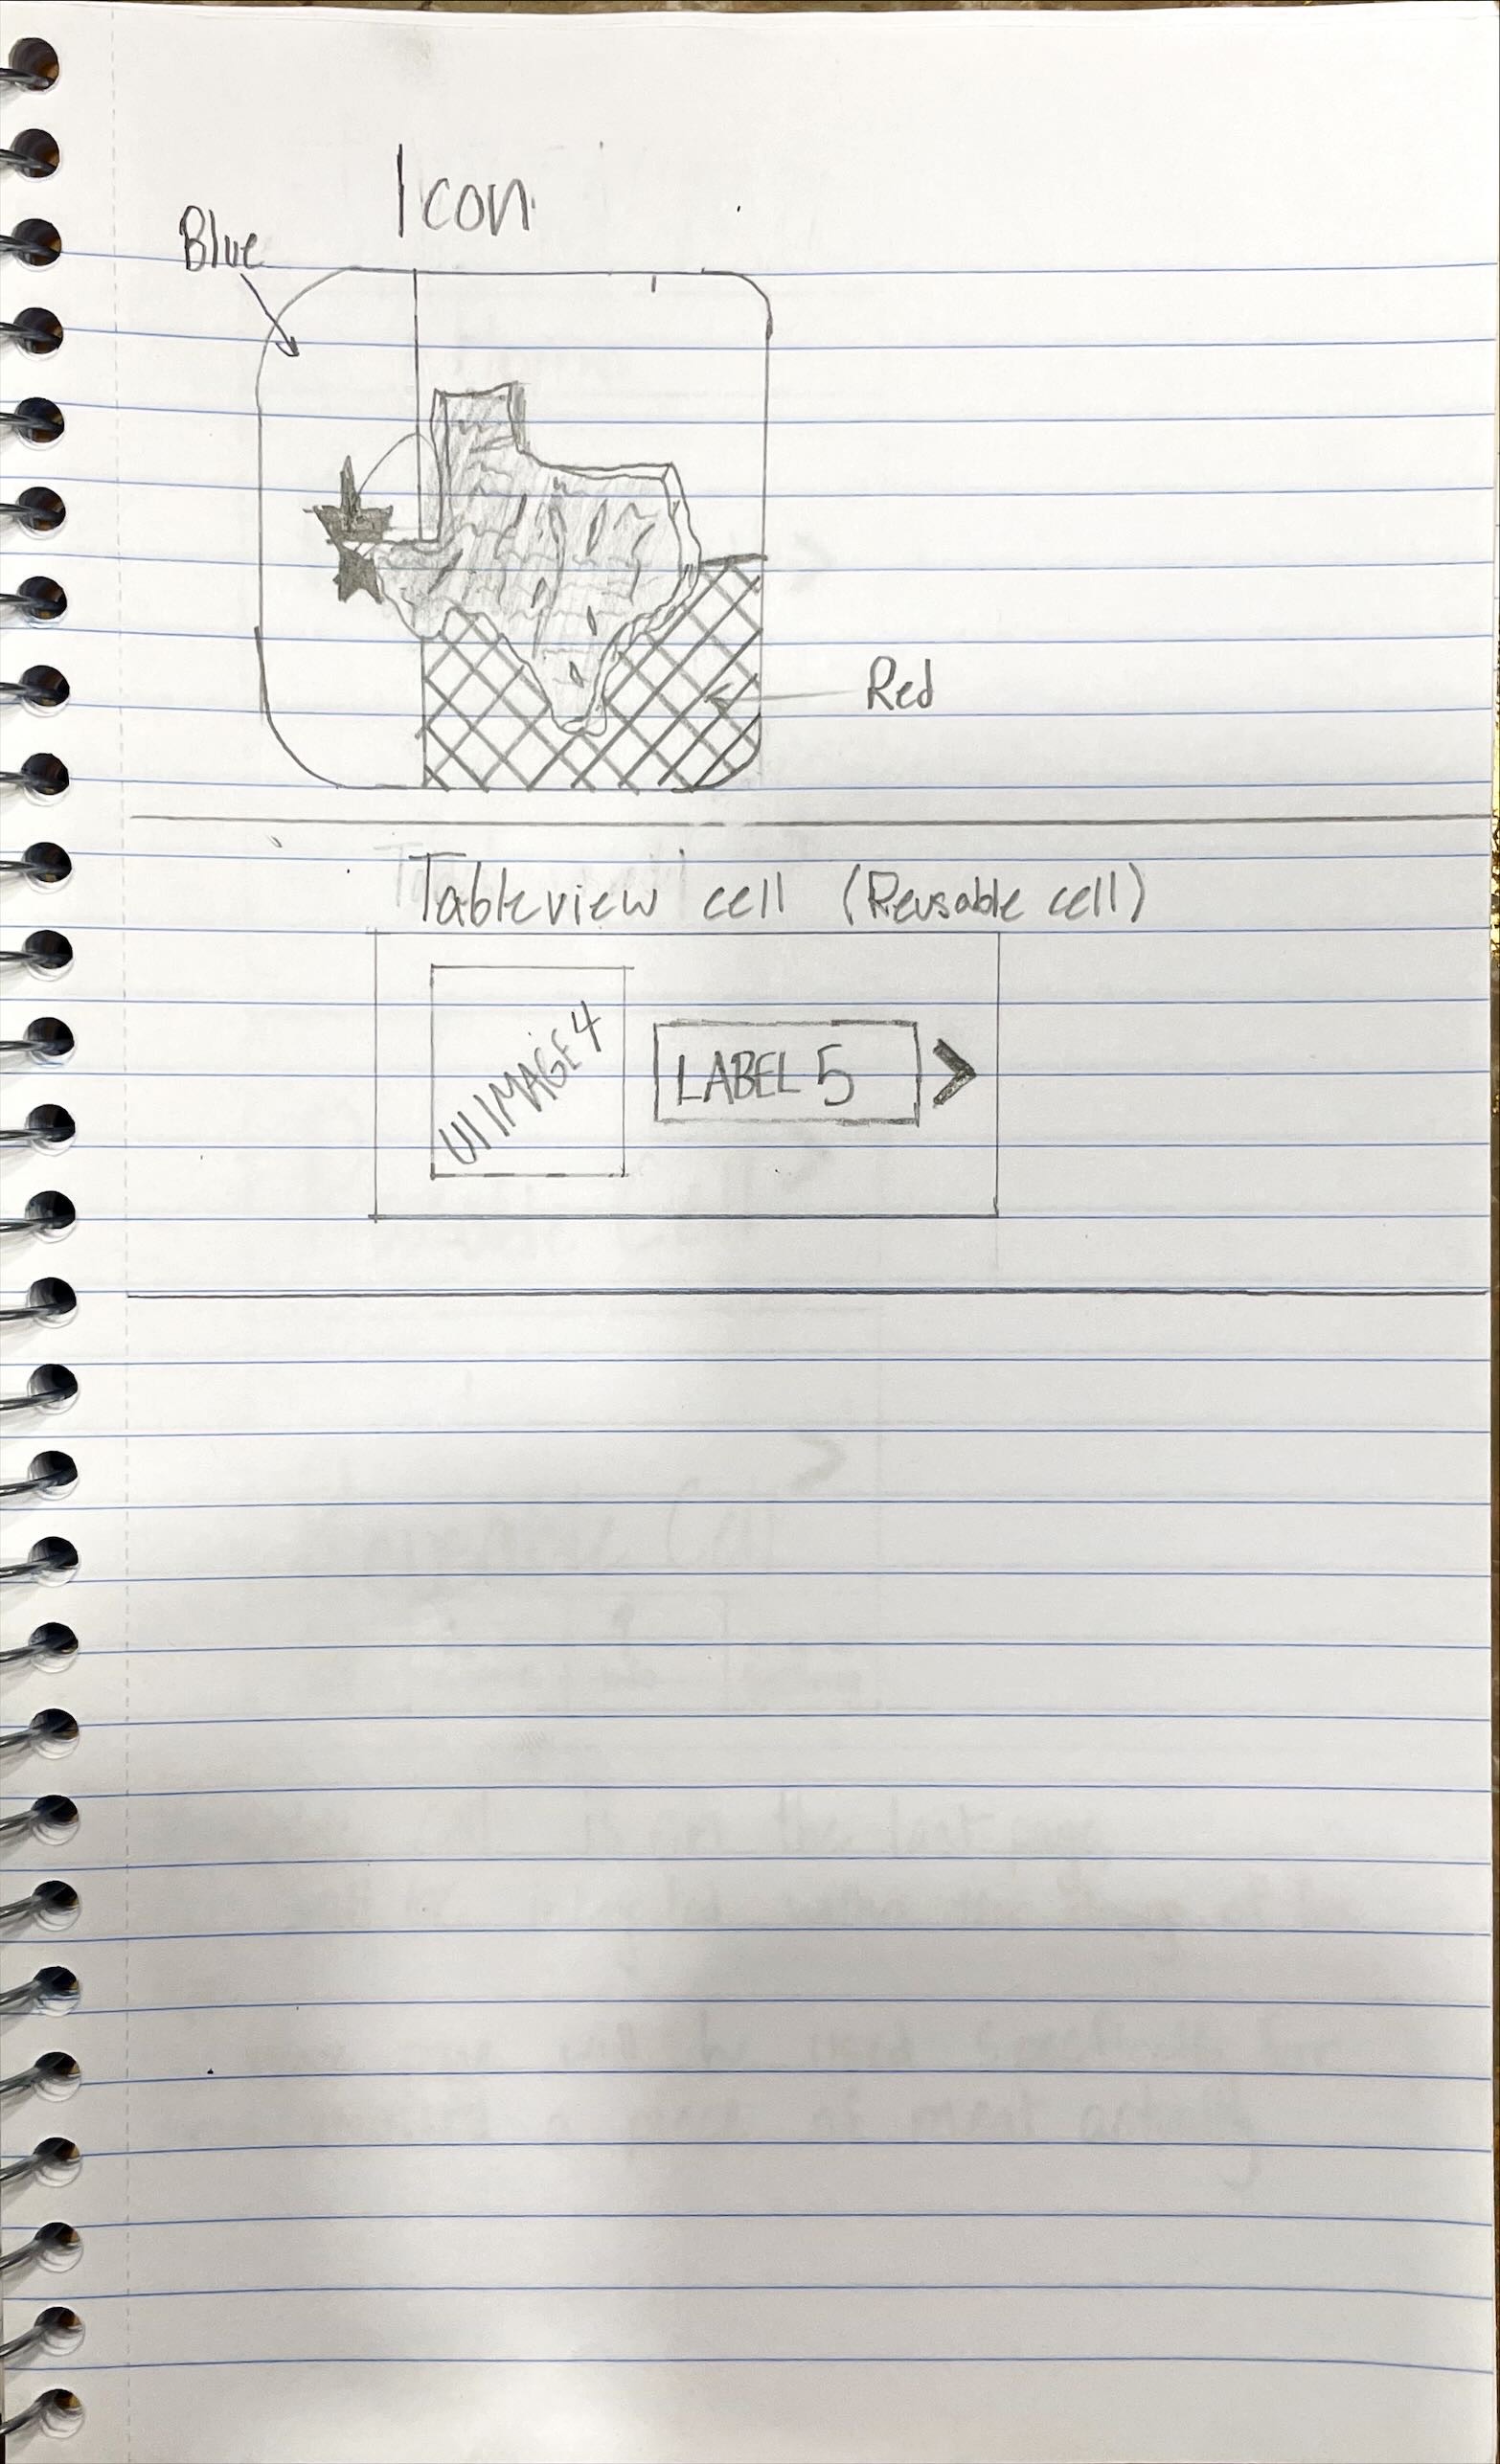 Icon
Blue
Red
Tableview cell (Reusable cell)
UIIMAGE 4
LABEL 5